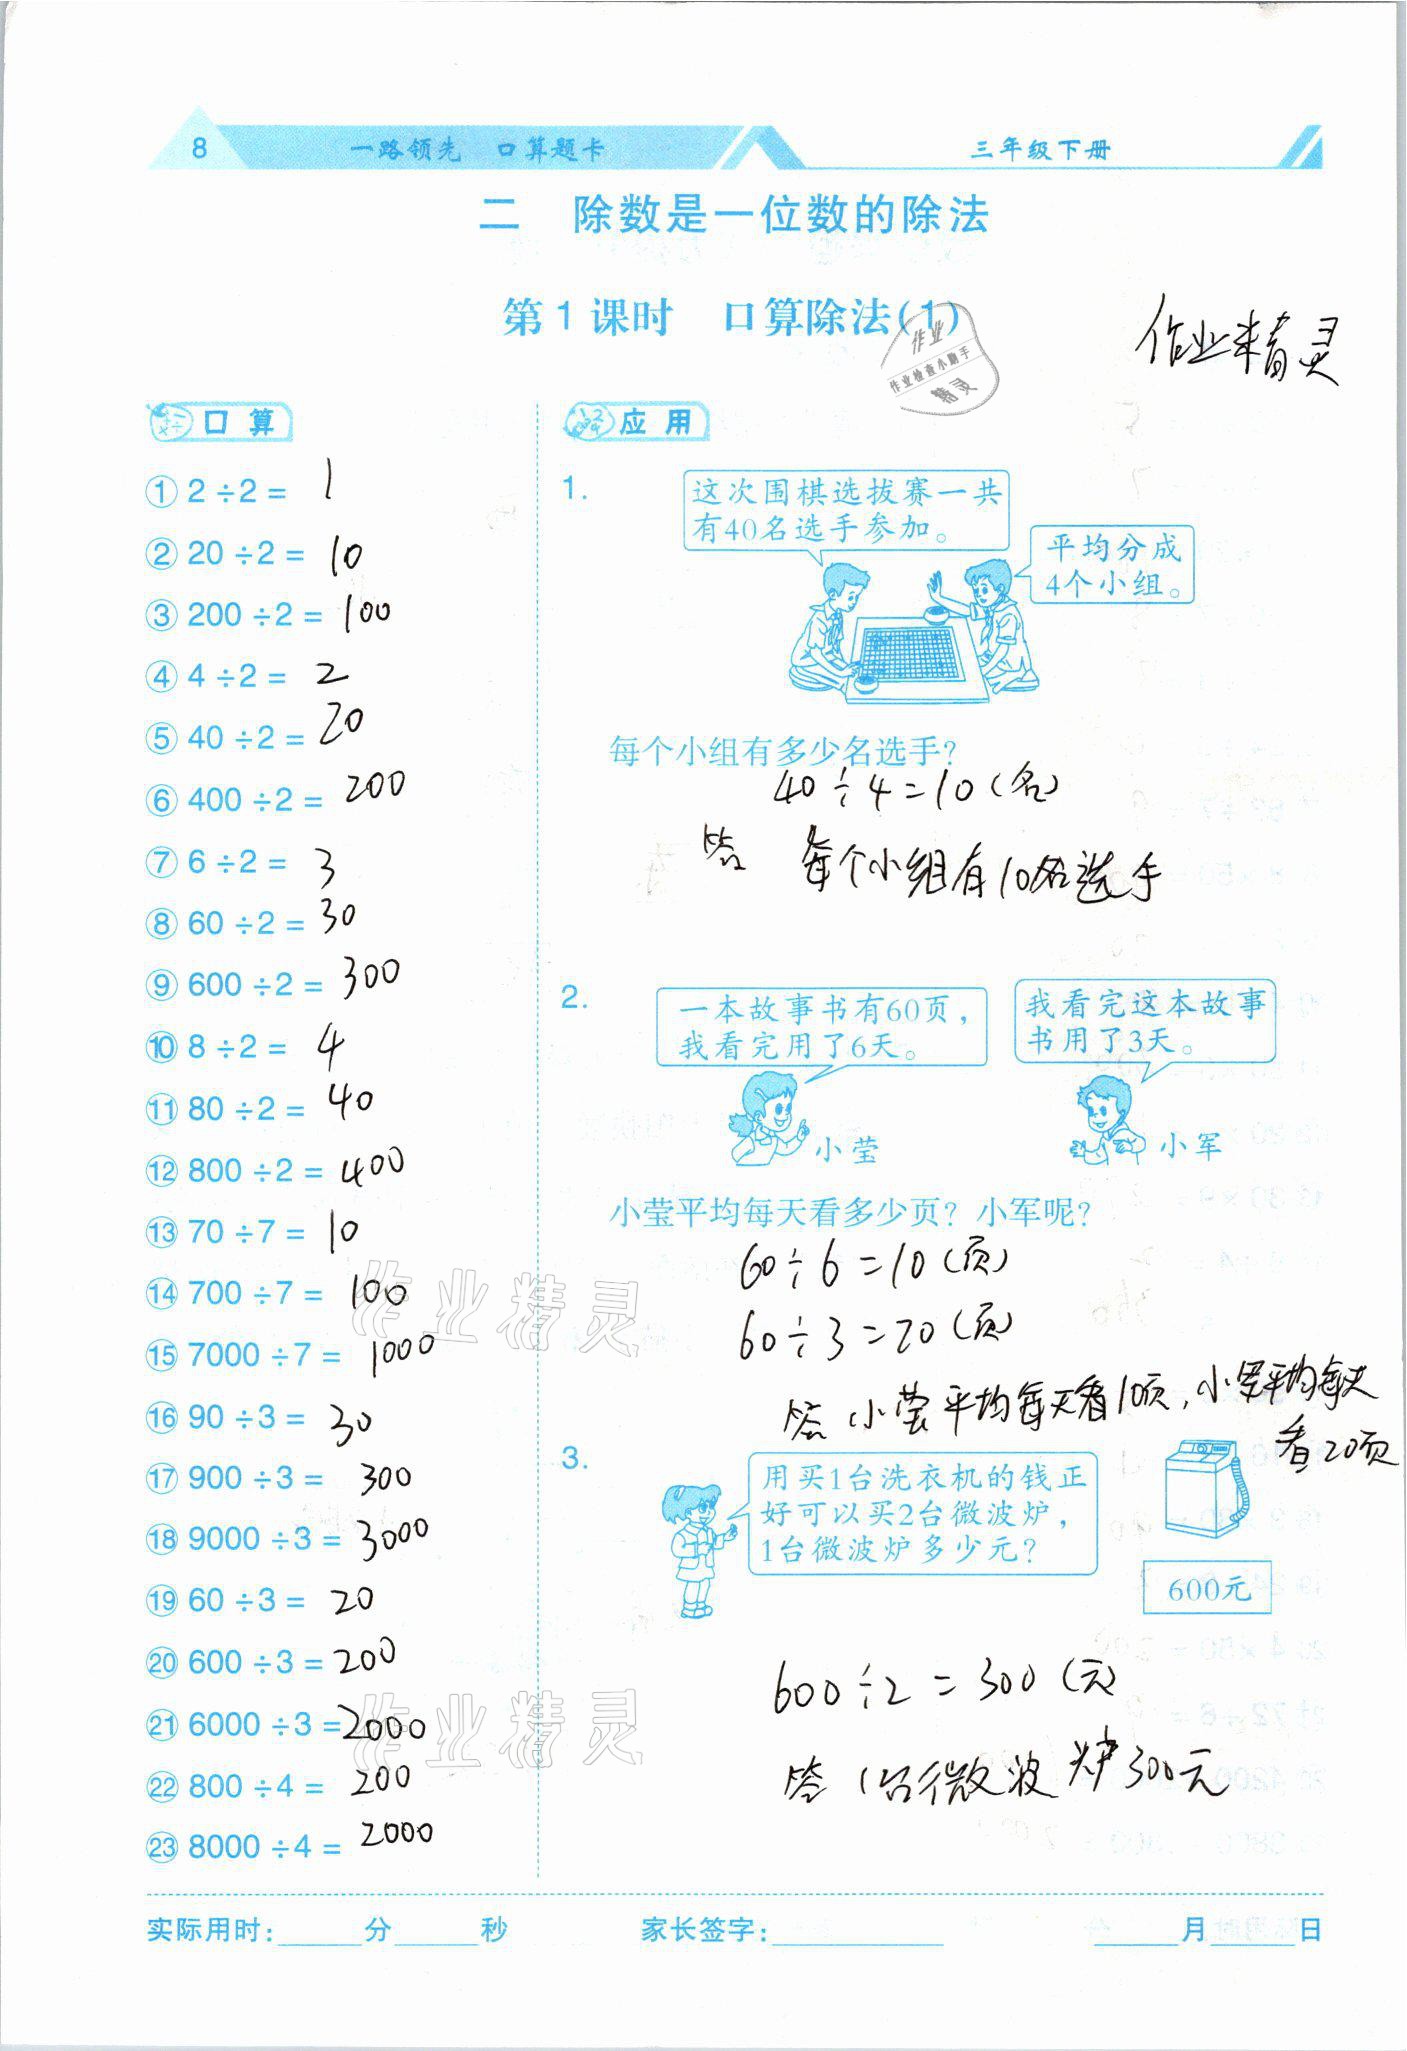 8 一路领先 口算题卡 三年级下册
二 除数是一位数的除法
第1课时 口算除法(1)
作业精灵
作业
作业检查小助手
精灵
口算
① 2÷2= 1
② 20÷2= 10
③ 200÷2= 100
④ 4÷2= 2
⑤ 40÷2= 20
⑥ 400÷2= 200
⑦ 6÷2= 3
⑧ 60÷2= 30
⑨ 600÷2= 300
⑩ 8÷2= 4
⑪ 80÷2= 40
⑫ 800÷2= 400
⑬ 70÷7= 10
⑭ 700÷7= 100
⑮ 7000÷7= 1000
⑯ 90÷3= 30
⑰ 900÷3= 300
⑱ 9000÷3= 3000
⑲ 60÷3= 20
⑳ 600÷3= 200
㉑ 6000÷3= 2000
㉒ 800÷4= 200
㉓ 8000÷4= 2000
应用
1.
这次围棋选拔赛一共
有40名选手参加。
平均分成
4个小组。
每个小组有多少名选手?
40÷4=10(名)
答 每个小组有10名选手
2.
一本故事书有60页,
我看完用了6天。
我看完这本故事
书用了3天。
小莹
小军
小莹平均每天看多少页? 小军呢?
60÷6=10(页)
60÷3=20(页)
答 小莹平均每天看10页,小军平均每天
看20页
3.
用买1台洗衣机的钱正
好可以买2台微波炉,
1台微波炉多少元?
600元
600÷2=300(元)
答 1台微波炉300元
作业精灵
作业精灵
实际用时:______分______秒 家长签字:____________ ______月______日